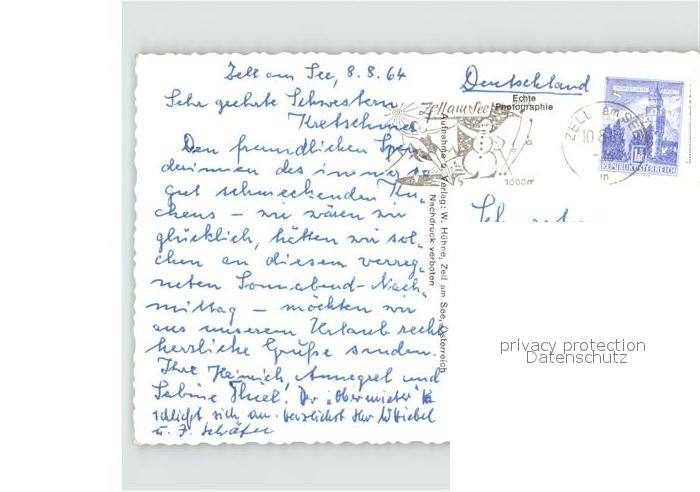 Zell am See, 8.8.64
Sehr geehrte Schwestern
Kretschmer!
Den freundlichen Spen-
derinnen des immer so
gut schmeckenden Ku-
chens – wie wären wir
glücklich, hätten wir sol-
chen an diesem verreg-
neten Sonnabend-Nach-
mittag – möchten wir
aus unserem Urlaub recht
herzliche Grüße senden.
Ihre Heinrich, Annegret und
Sabine Thiel. Der "Obermieter"
schließt sich an. Herzlichst Ihr
u. F. Schäfer
Deutschland
Echte
Photographie
Zell am See
1000m
ZELL am SEE
REPUBLIK ÖSTERREICH
Aufnahme u. Verlag: W. Hühne, Zell am See, Österreich
Nachdruck verboten
privacy protection
Datenschutz